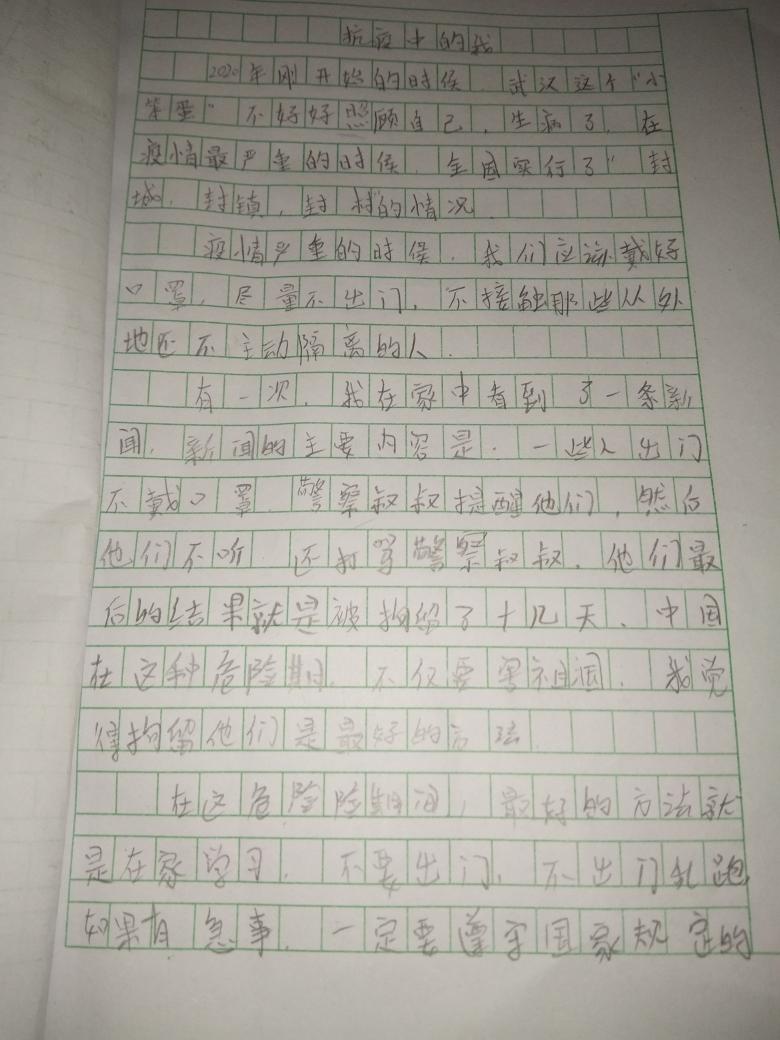 抗疫中的我
2020年刚开始的时候，武汉这个“小
笨蛋”不好好照顾自己，生病了，在
疫情最严重的时候，全国实行了“封
城，封镇，封村的情况，
疫情严重的时候，我们应该戴好
口罩，尽量不出门，不接触那些从外
地还不主动隔离的人.
有一次，我在家中看到了一条新
闻，新闻的主要内容是.一些人出门
不戴口罩，警察叔叔提醒他们，然后
他们不听 还打骂警察叔叔，他们最
后的结果就是被拘留了十几天、中国
在这种危险期，不仅要 祖国，我觉
得拘留他们是最好的方法
在这危险险期间，最好的方法就
是在家学习，不要出门，不出门乱跑
如果有急事，一定要遵守国家规定的